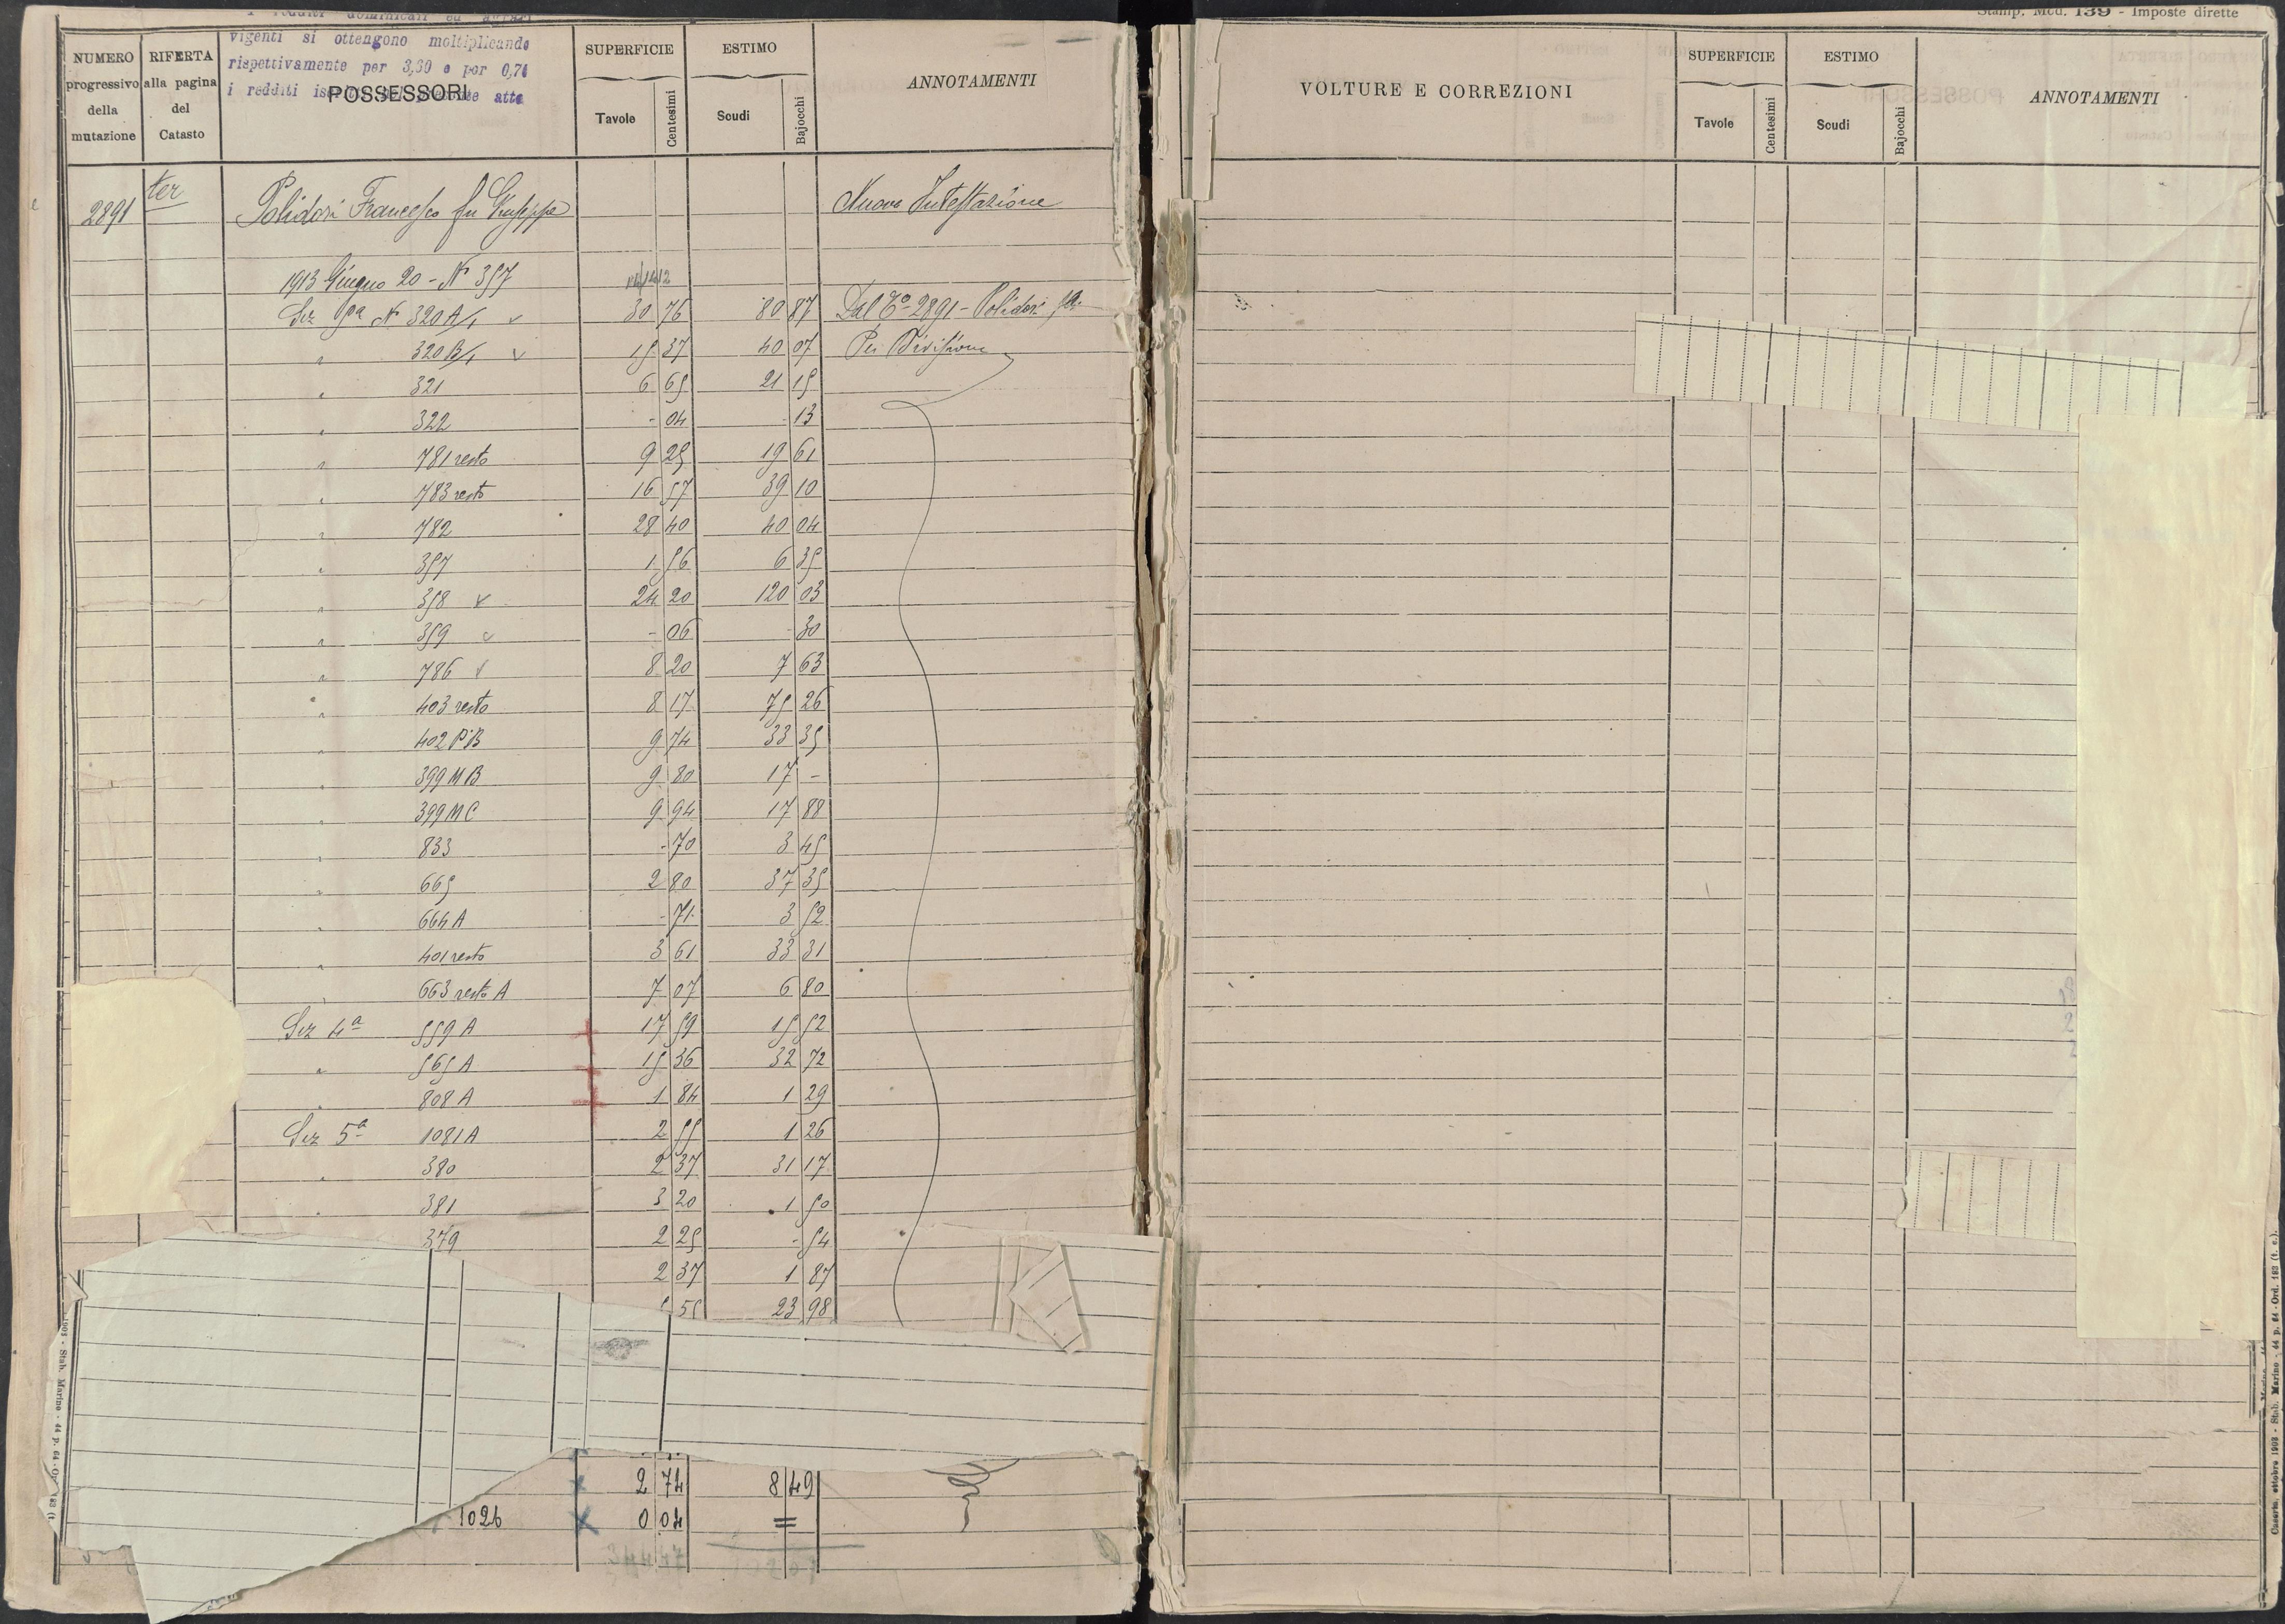 i redditi dominicali ed agrari
vigenti si ottengono moltiplicando
rispettivamente per 3,30 e per 0,74
i redditi
atto
NUMERO progressivo della mutazione
RIFERTA alla pagina del Catasto
POSSESSORI
SUPERFICIE
Tavole Centesimi
ESTIMO
Scudi Bajocchi
ANNOTAMENTI
2891 ter Polidori Francesco fu Giuseppe Nuova Intestazione
1913 Giugno 20 - N 357
Sez N 320 A/1 v 30 76 80 87 Dal 2891 - Polidori
" 320 B/1 v 15 37 40 07 Per Divisione
" 321 6 65 21 15
" 322 - 04 - 13
" 781 resto 9 25 19 61
" 783 resto 16 57 39 10
" 782 28 40 40 04
" 357 1 56 6 35
" 358 v 24 20 120 03
" 359 v - 06 - 30
" 786 v 8 20 7 63
" 403 resto 8 17 75 26
" 402 P'B 9 74 33 35
" 399 M B 9 80 17 -
" 399 M C 9 94 17 88
" 833 - 70 3 45
" 665 2 80 37 35
" 664 A - 71 3 52
" 401 resto 3 61 33 31
663 resto A 7 07 6 80
Sez 4a 559 A 17 59 15 52
" 565 A 15 36 32 72
" 808 A 1 84 1 29
Sez 5a 1081 A 2 55 1 26
" 380 2 37 31 17
" 381 3 20 1 50
379 2 25 - 54
2 37 1 87
55 23 98
x 2 74 8 49
1026 x 0 04 =
1903 - Stab. Marino - 44 p. 64 - Ord. 183 (t.
Stamp. Mod. 139 - Imposte dirette
VOLTURE E CORREZIONI
SUPERFICIE
Tavole Centesimi
ESTIMO
Scudi Bajocchi
ANNOTAMENTI
Caserta, ottobre 1903 - Stab. Marino - 44 p. 64 - Ord. 183 (t. c.).